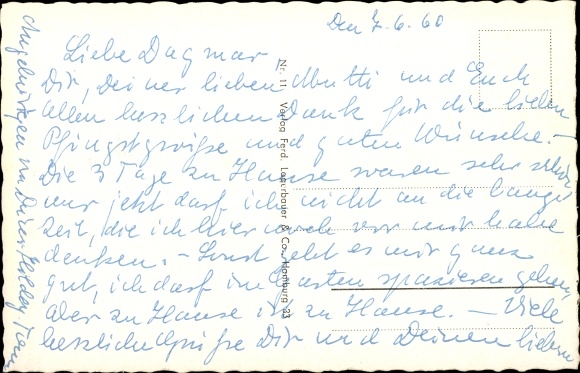 Den 7.6.60
Liebe Dagmar
Dir, deiner lieben Mutti und Euch
allen herzlichen Dank für die lieben
Pfingstgrüße und guten Wünsche. –
Die 3 Tage zu Hause waren sehr schön
nur jetzt darf ich nicht an die lange
Zeit, die ich hier noch vor mir habe
denken. – Sonst geht es mir ganz
gut, ich darf im Garten spazieren gehen,
aber zu Hause ist zu Hause. – Viele
herzliche Grüße Dir und Deinen lieben
Angehörigen von Deiner
Nr. 11 Verlag Ferd. Lagerbauer & Co., Hamburg 23